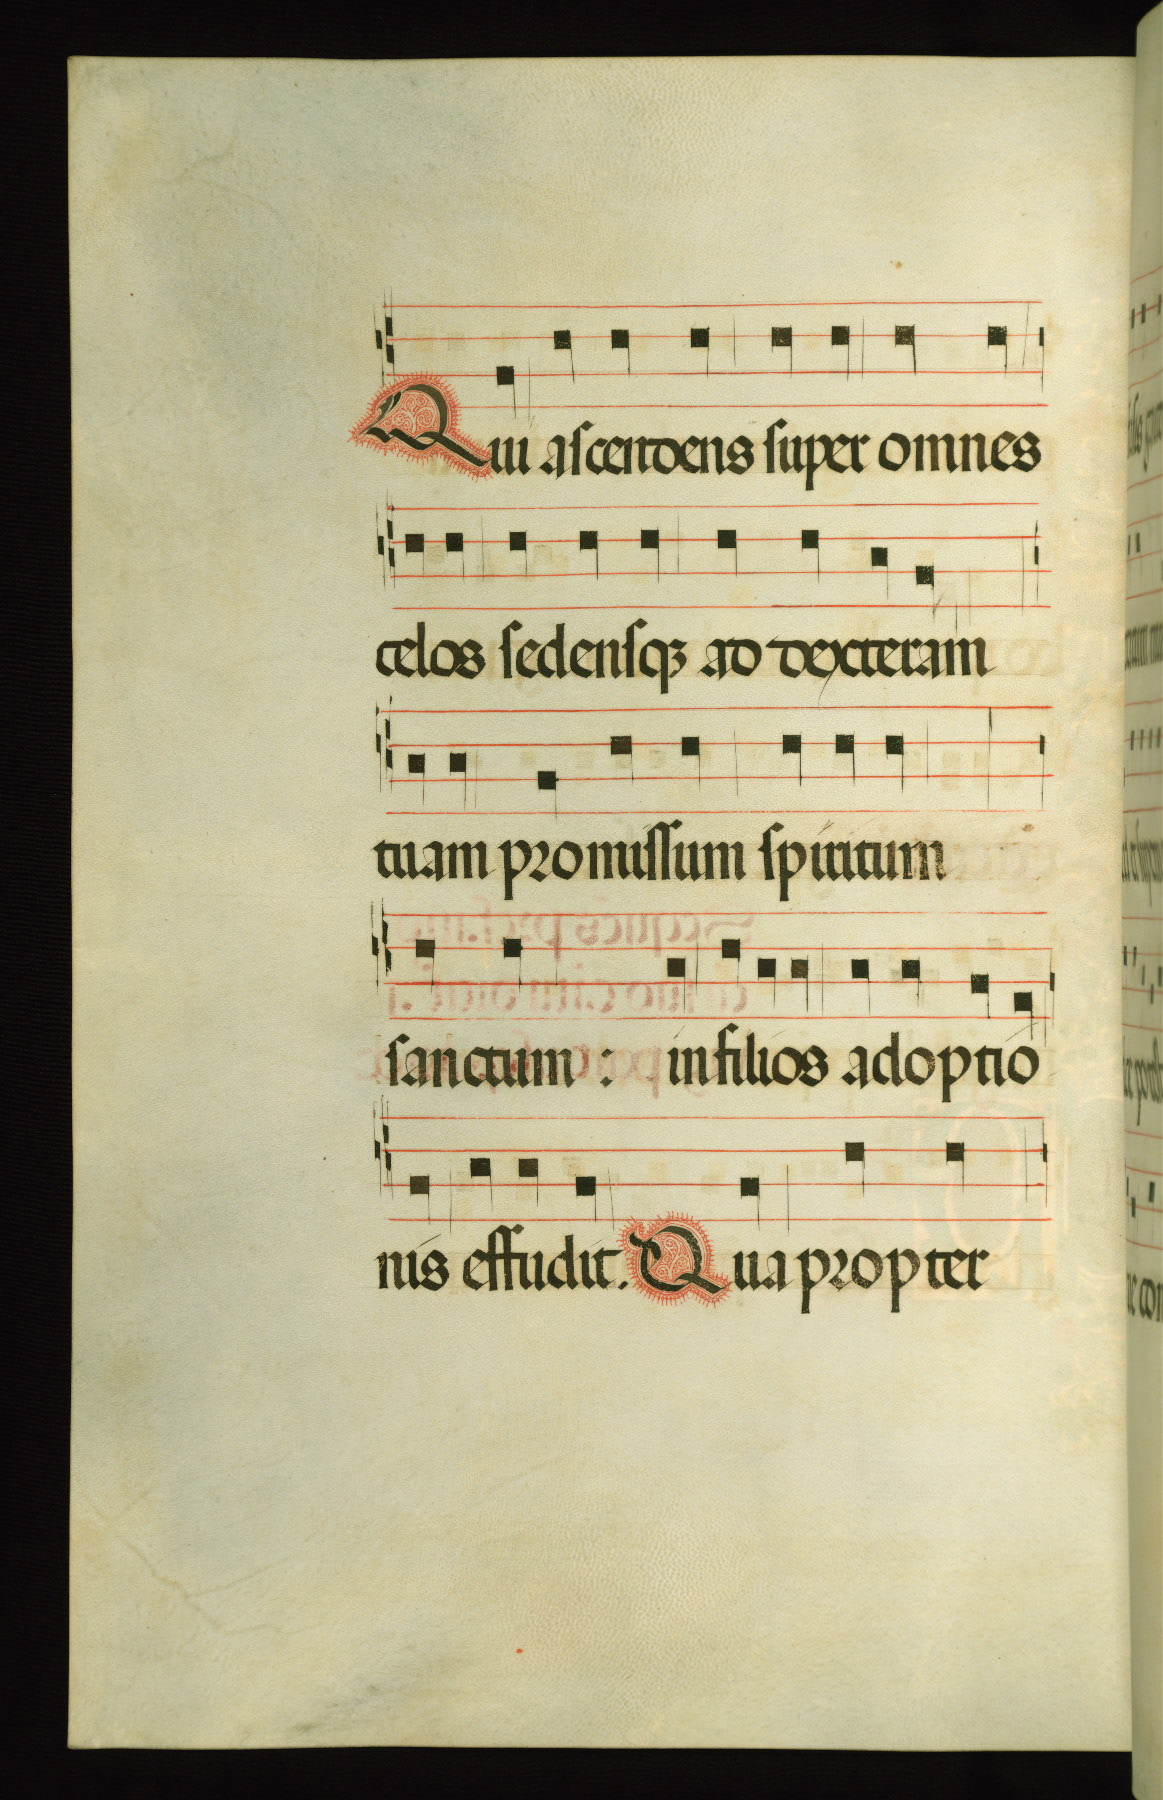 Qui ascendens super omnes
celos sedensqꝫ ad dexteram
tuam promissum spiritum
sanctum : in filios adoptio
nis effudit. Quapropter